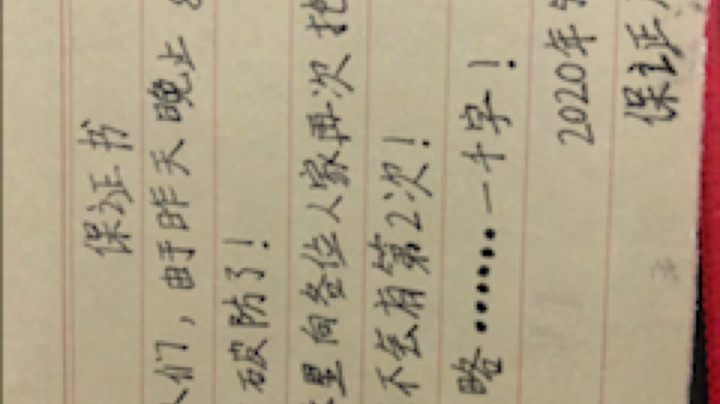 保证书
人们，由于昨天晚上
破防了！
里向各位人家再次
不会有第2次！
略……一千字！
2020年
保证